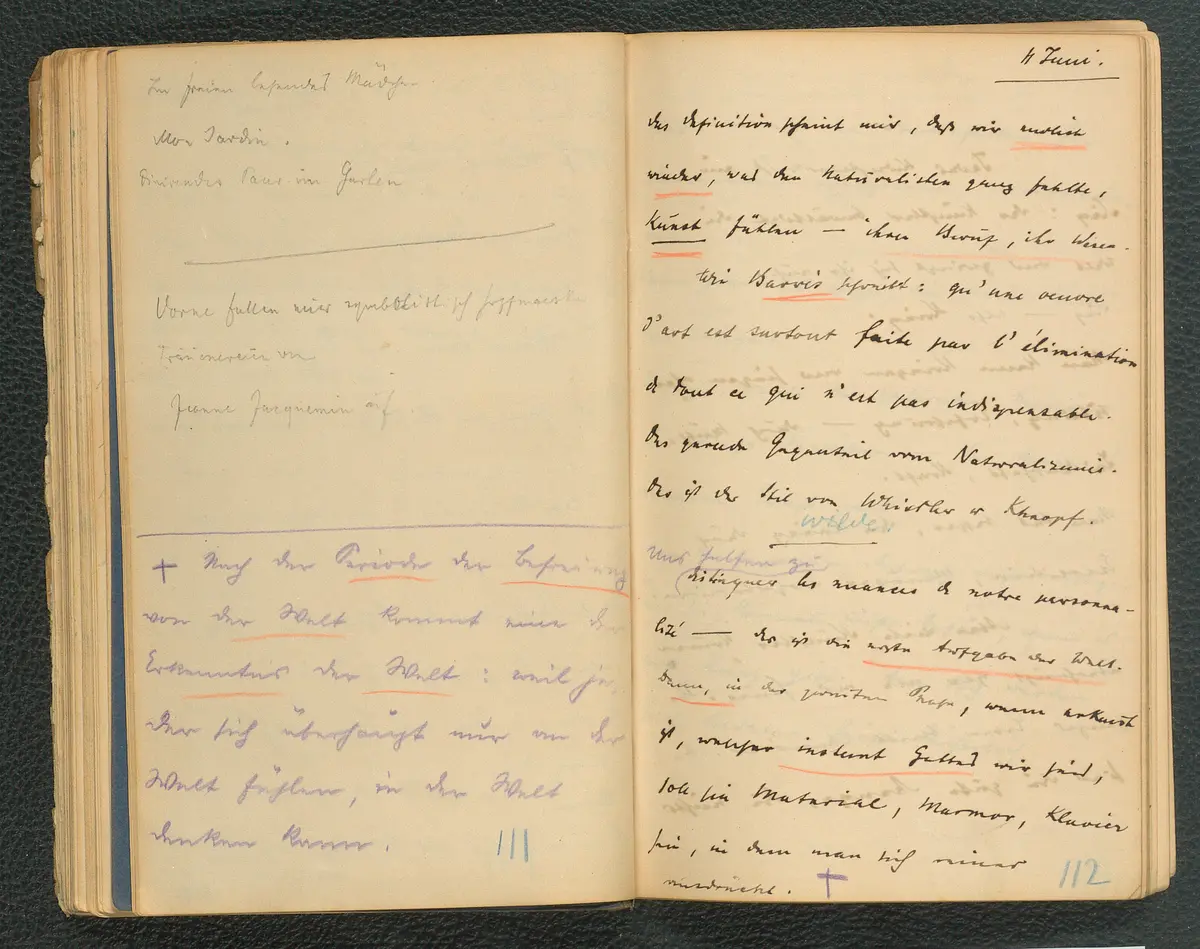 Im freien lesendes Mädchen
Mon Jardin.
Dinirendes Paar im Garten
Vorne fallen mir symbolistisch
Träumereien von
Jeanne Jacquemin auf.
+ Nach der Periode der Befreiung
von der Welt kommt eine der
Erkenntnis der Welt: weil je
der sich überhaupt nur an der
Welt fühlen, in der Welt
denken kann.
111
4 Juni.
der Definition scheint mir, daß wir endlich
wieder, was den Naturalisten ganz fehlte,
Kunst fühlen — ihren Beruf, ihr Wesen.
Wie Barrès schreibt: qu'une oeuvre
d'art est surtout faite par l'élimination
de tout ce qui n'est pas indispensable.
Das gerade Gegenteil vom Naturalismus.
Das ist der Stil von Whistler u Khnopf.
Wilde
Uns helfen zu
distinguer les nuances de notre personna-
lité — das ist die erste Aufgabe der Welt.
Dann, in der zweiten Phase, wenn erkannt
ist, welcher instinct Gottes wir sind,
soll sie Material, Marmor, Klavier
sein, in dem man sich
ausdrückt. +
112